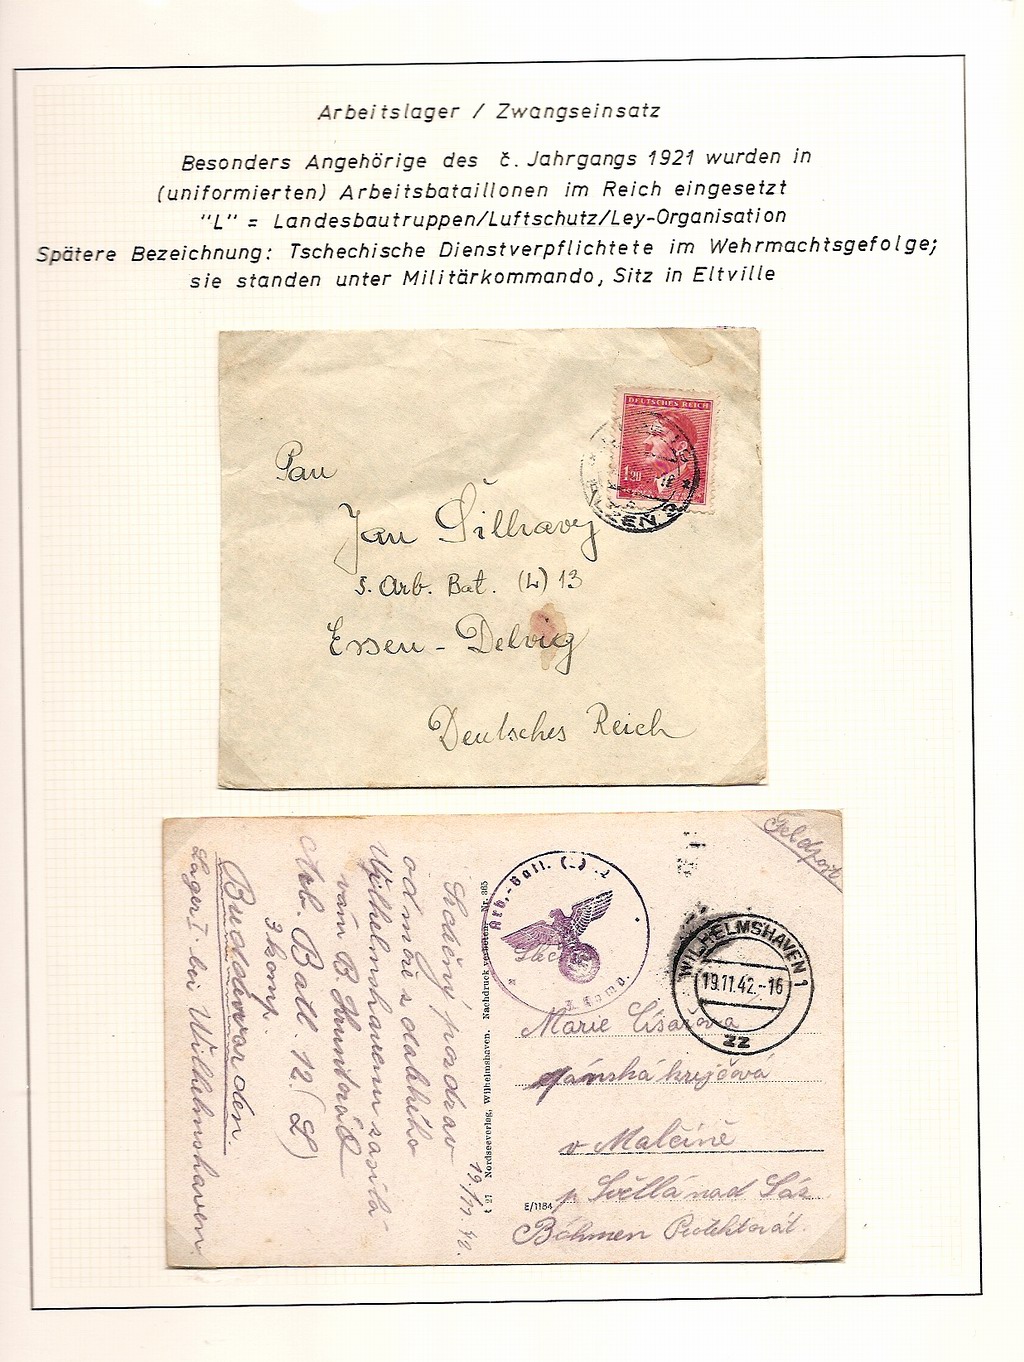 Arbeitslager / Zwangseinsatz
Besonders Angehörige des č. Jahrgangs 1921 wurden in
(uniformierten) Arbeitsbataillonen im Reich eingesetzt
"L" = Landesbautruppen/Luftschutz/Ley-Organisation
Spätere Bezeichnung: Tschechische Dienstverpflichtete im Wehrmachtsgefolge;
sie standen unter Militärkommando, Sitz in Eltville
DEUTSCHES REICH
1.20
PLZEŇ 3
Pan
Jan Šilhavý
5. Arb. Bat. (L) 13
Essen - Delvig
Deutsches Reich
Feldpost
Arb.-Batl. (L) 12
3. Komp.
WILHELMSHAVEN 1
19.11.42.-16
zz
Marie Císařová
dámská krejčová
v Malčíně
p. Světlá nad Sáz.
Böhmen Protektorát.
E/1184
ξ 27 Nordseeverlag, Wilhelmshaven. Nachdruck verboten. Nr. 365
19./11 42.
Srdečný pozdrav
od moře z dalekého
Wilhelmshavenu zasílá
vám B.
Arb. Batl. 12. (L)
3 komp.
Buddwarden.
Lager I. bei Wilhelmshaven.